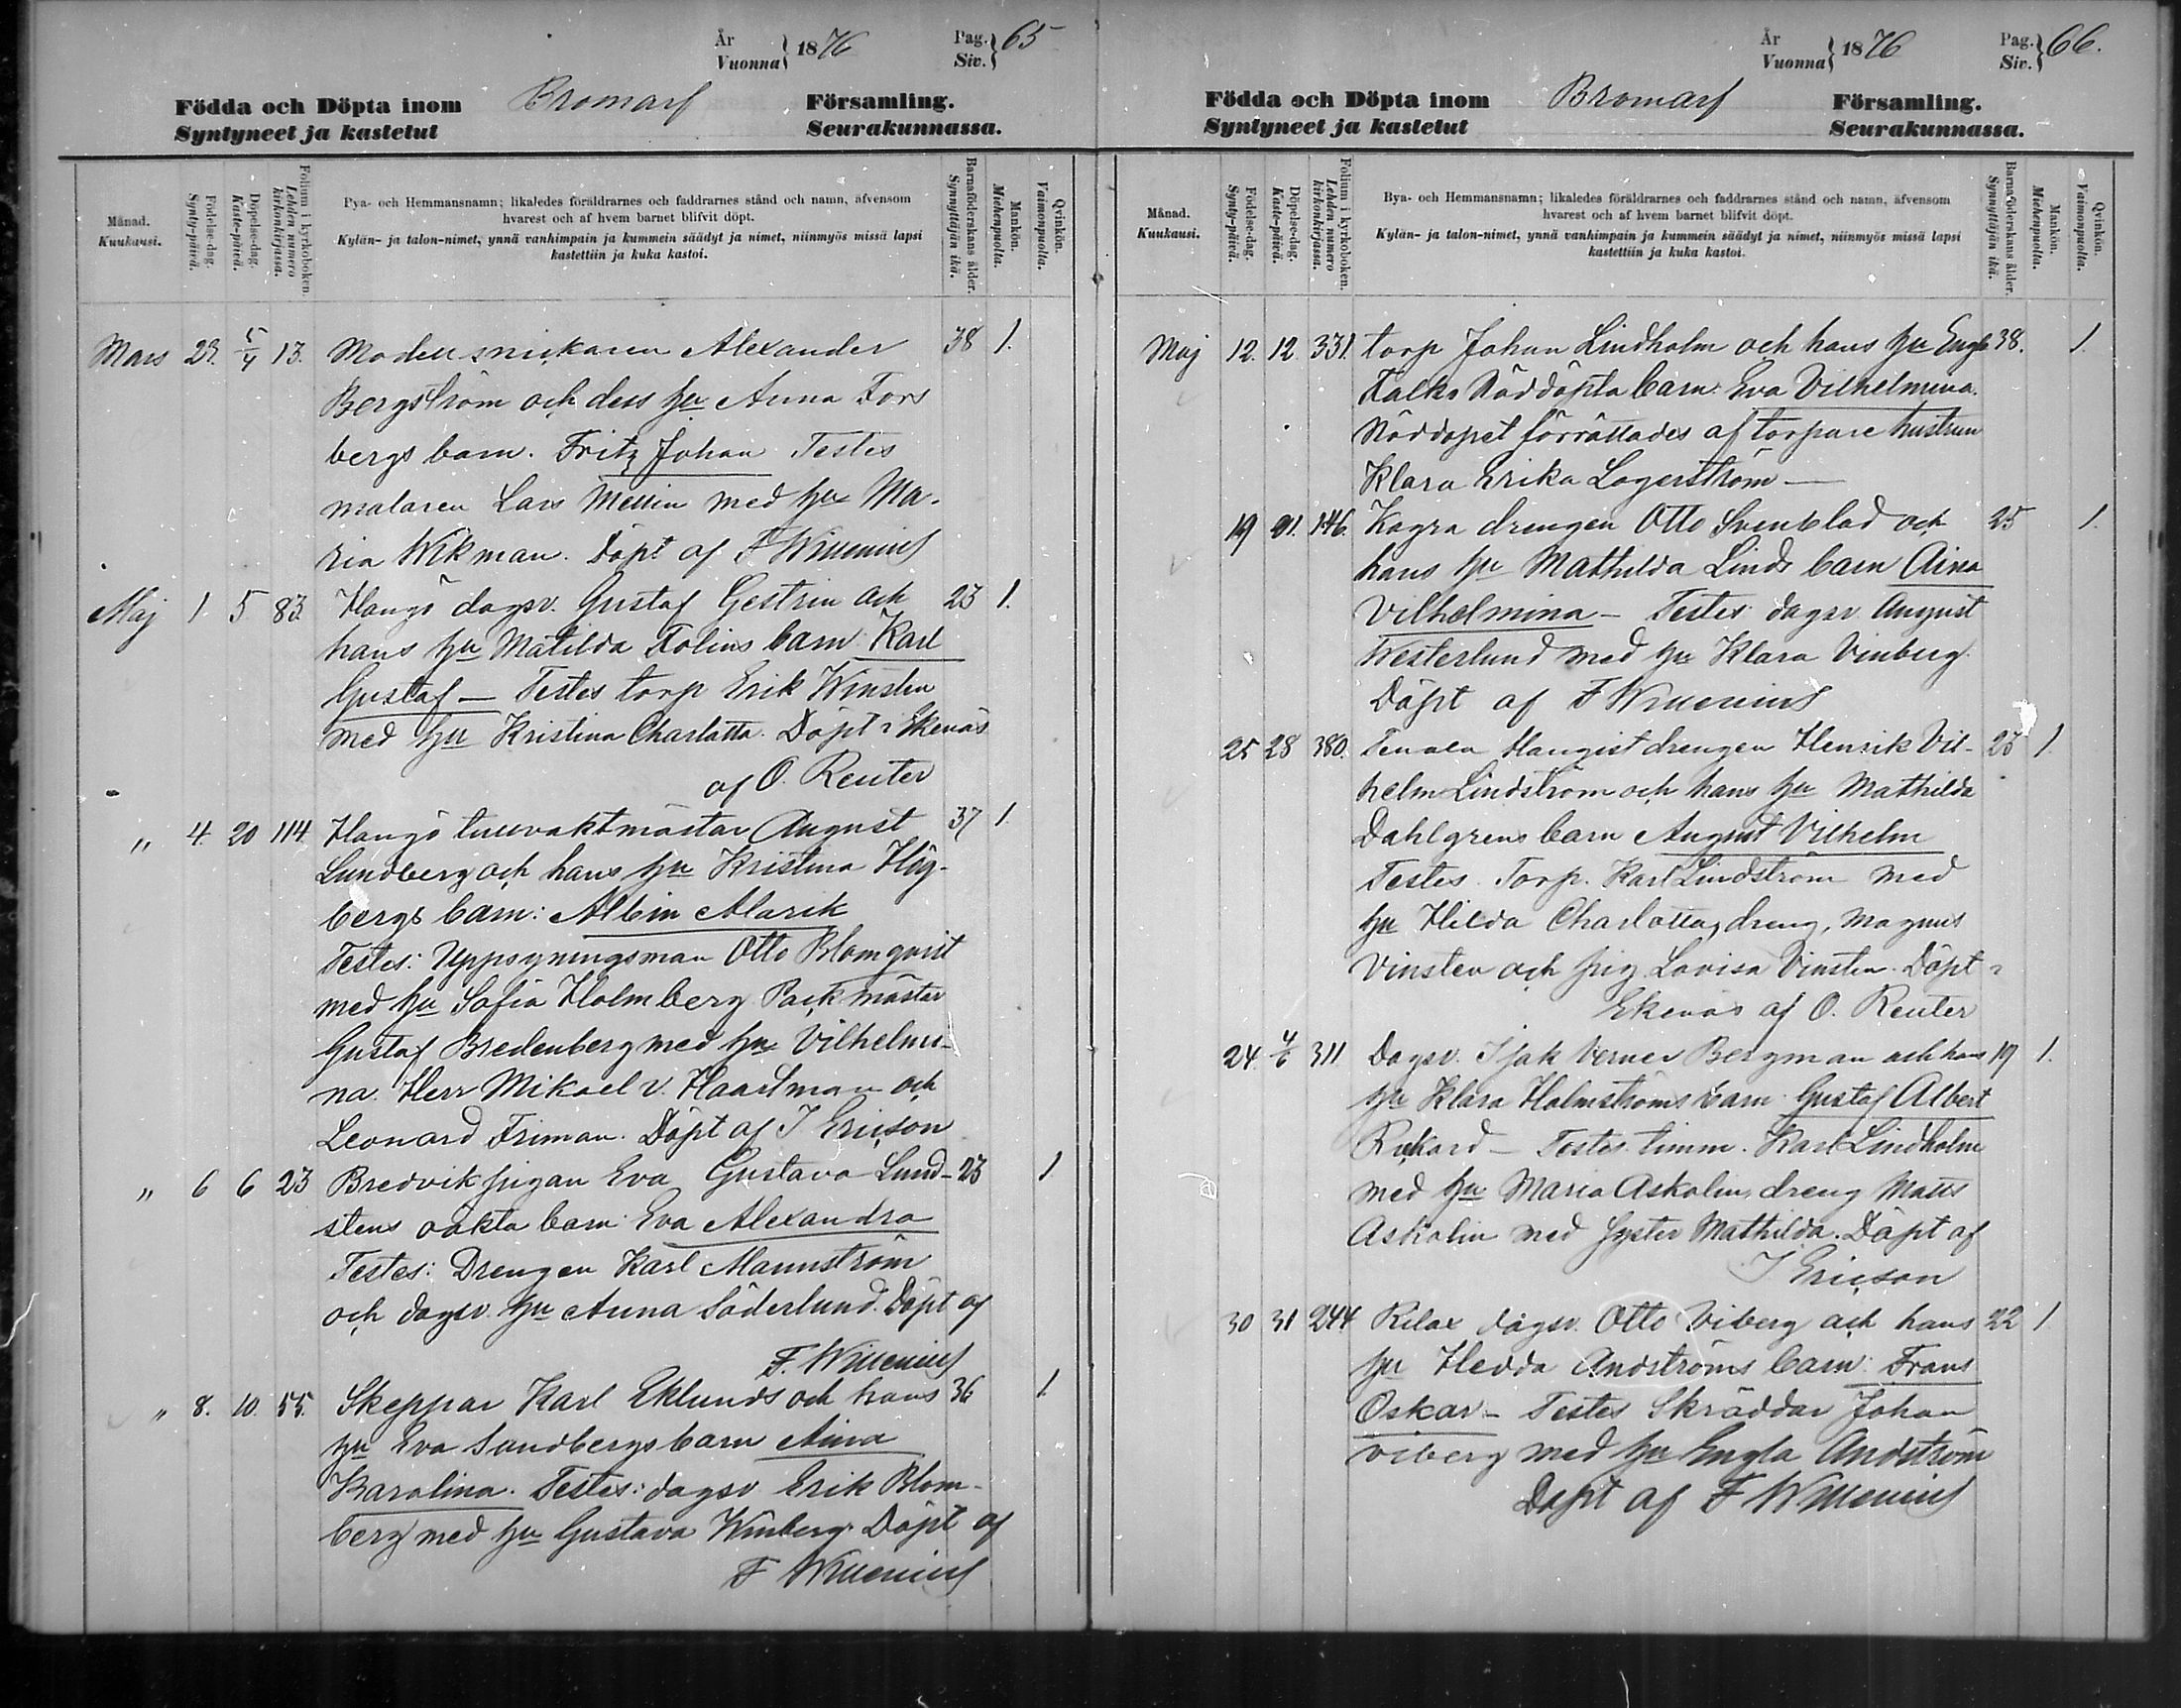 År
Vuonna} 1876
Pag.
Siv.} 65
Födda och Döpta inom Bromarf Församling.
Syntyneet ja kastetut Seurakunnassa.
Månad.
Kuukausi.
Födelse-dag.
Synty-päivä.
Döpelse-dag.
Kaste-päivä.
Folium i kyrkoboken.
Lehden numero
kirkonkirjassa.
Pya- och Hemmansnamn; likaledes föräldrarnes och faddrarnes stånd och namn, äfvensom
hvarest och af hvem barnet blifvit döpt.
Kylän- ja talon-nimet, ynnä vanhimpain ja kummein säädyt ja nimet, niinmyös missä lapsi
kastettiin ja kuka kastoi.
Barnaföderskans ålder.
Synnyttäjän ikä.
Mankön.
Miehenpuolta.
Qvinkön.
Vaimonpuolta.
Mars 29. 5/4 13. Modellsnickaren Alexander 38 1.
Bergström och dess hu Anna Fors
bergs barn. Fritz Johan Testes
malaren Lars Mellin med hu Ma-
ria Wikman. Döpt af F Willenius
Maj 1 5 83. Hangö dagsv. Gustaf Gestrin och 23 1.
hans hu Matilda Folins barn: Karl
Gustaf — Testes torp Erik Winsten
med hu Kristina Charlotta. Döpt i Ekenäs
af O. Reuter
" 4. 20 114 Hangö tullvaktmästar August 37 1
Lundberg och hans hu Kristina Hög-
bergs barn: Albin Alarik
Testes: Uppsyningsman Otto Blomqvist
med hu Sofia Holmberg Packmäster
Gustaf Bredenberg med hu Vilhelmi-
na. Herr Mikael v. Haartman och
Leonard Friman. Döpt af J Ericson
" 6 6 23 Bredvik pigan Eva Gustava Lund- 23 1
stens oäkta barn: Eva Alexandra
Testes: Drengen Karl Mannström
och dagsv. hu Anna Söderlund. Döpt af
F. Willenius
" 8. 10. 55. Skeppar Karl Eklunds och hans 36 1.
hu Eva Sandbergs barn Aina
Karolina. Testes: dagsv Erik Blom-
berg med hu Gustava Winberg. Döpt af
F Willenius
År
Vuonna} 1876
Pag.
Siv.} 66.
Födda och Döpta inom Bromarf Församling.
Syntyneet ja kastetut Seurakunnassa.
Månad.
Kuukausi.
Födelse-dag.
Synty-päivä.
Döpelse-dag.
Kaste-päivä.
Folium i kyrkoboken.
Lehden numero
kirkonkirjassa.
Bya- och Hemmansnamn; likaledes föräldrarnes och faddrarnes stånd och namn, äfvensom
hvarest och af hvem barnet blifvit döpt.
Kylän- ja talon-nimet, ynnä vanhimpain ja kummein säädyt ja nimet, niinmyös missä lapsi
kastettiin ja kuka kastoi.
Barnaföderskans ålder.
Synnyttäjän ikä.
Mankön.
Miehenpuolta.
Qvinkön.
Vaimonpuolta.
Maj 12. 12. 331. torp Johan Lindholm och hans hu Engla 38. 1.
Falks Nöddöpta barn: Eva Vilhelmina.
Nöddopet förrättades af torpare hustrun
Klara Erika Lagerström —
19 21. 146. Kagra drengen Otto Svenblad och 25 1.
hans hu Mathilda Linds barn Aina
Vilhelmina — Testes dagsv August
Westerlund med hu Klara Vinberg.
Döpt af F Willenius
25 28 380. Tenala Hangist drengen Henrik Vil- 23 1.
helm Lindström och hans hu Mathilda
Dahlgrens barn August Vilhelm
Testes. Torp. Karl Lindström med
hu Hilda Charlotta, dreng, Magnus
Vinsten och pig. Lovisa Vinsten. Döpt i
Ekenäs af O. Reuter
24 4/6 311. Dagsv. Isak Verner Bergman och hans 19 1.
hu Klara Holmströms barn Gustaf Albert
Rickard — Testes timm. Karl Lindholm
med hu Maria Askolin, dreng Matts
Askolin med syster Mathilda. Döpt af
J Ericson
30 31 244 Rilax dagsv. Otto Viberg och hans 22 1
hu Hedda Andströms barn: Frans
Oskar — Testes Skräddar Johan
Viberg med hu Engla Andström
Döpt af F Willenius